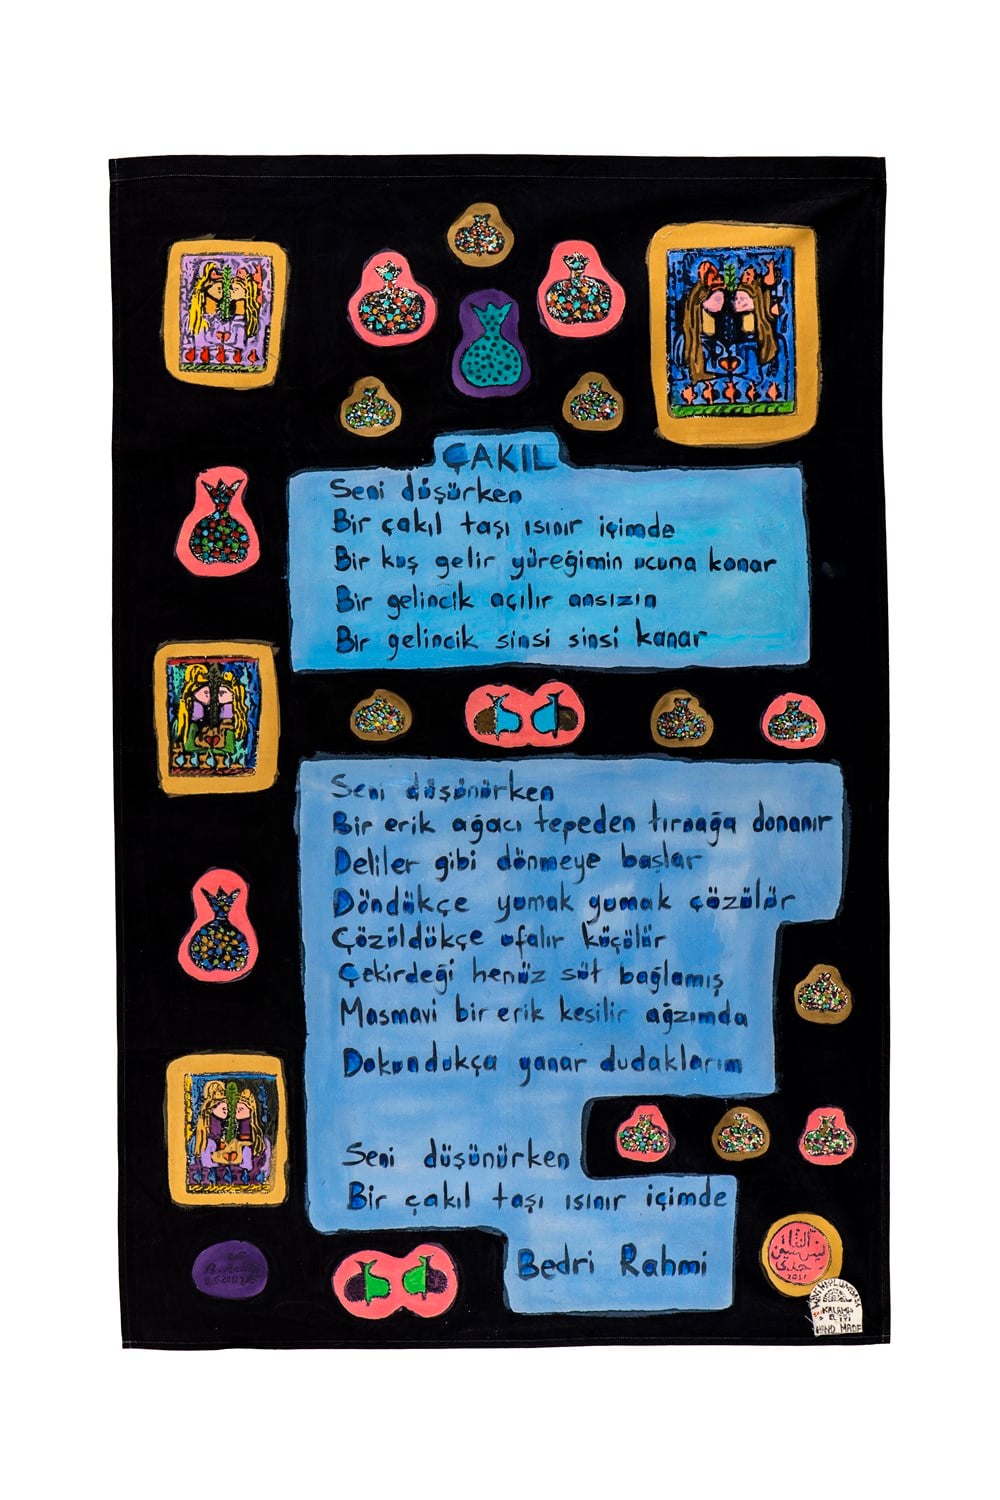 ÇAKIL
Seni düşürken
Bir çakıl taşı ısınır içimde
Bir kuş gelir yüreğimin ucuna konar
Bir gelincik açılır ansızın
Bir gelincik sinsi sinsi kanar
Seni düşünürken
Bir erik ağacı tepeden tırnağa donanır
Deliler gibi dönmeye başlar
Döndükçe yumak yumak çözülür
Çözüldükçe ufalır küçülür
Çekirdeği henüz süt bağlamış
Masmavi bir erik kesilir ağzımda
Dokundukça yanar dudaklarım
Seni düşünürken
Bir çakıl taşı ısınır içimde
Bedri Rahmi
2021
KALAMIŞ
HAND MADE